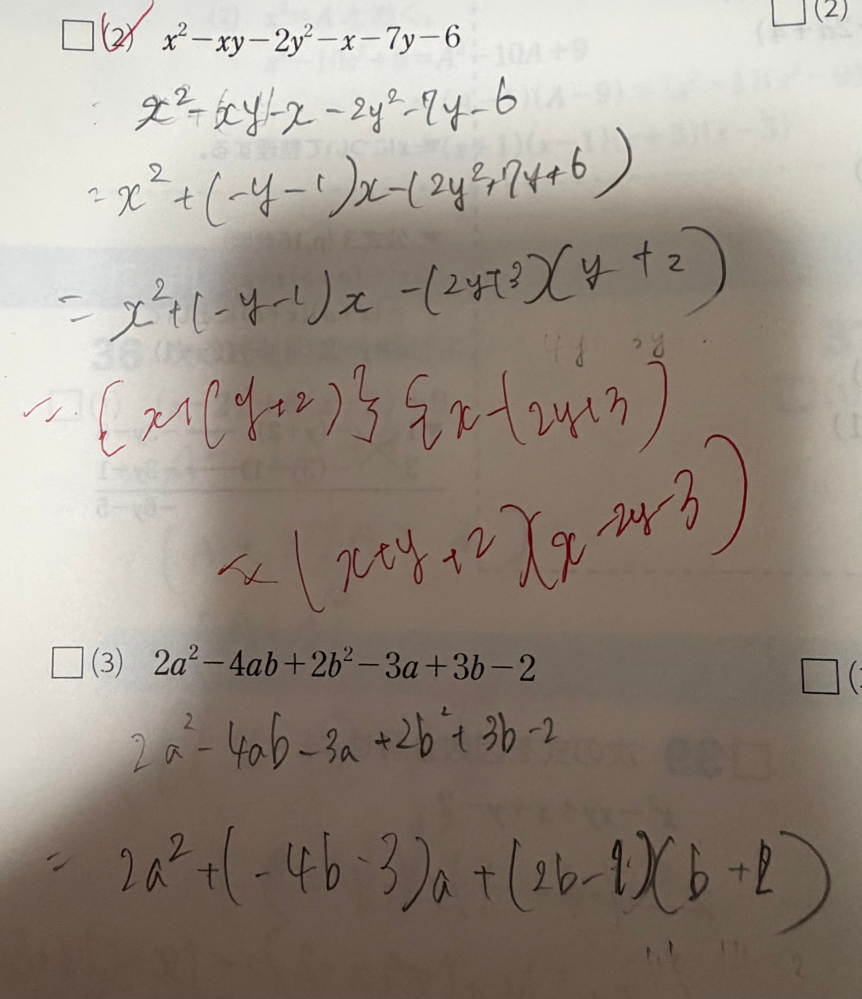 □(2) x²−xy−2y²−x−7y−6
□(2)
x²−xy−x−2y²−7y−6
= x²+(−y−1)x−(2y²+7y+6)
= x²+(−y−1)x −(2y+3)(y+2)
4y 3y
= {x+(y+2)}{x−(2y+3)
= (x+y+2)(x−2y−3)
□(3) 2a²−4ab+2b²−3a+3b−2
2a²−4ab−3a+2b²+3b−2
= 2a²+(−4b−3)a+(2b−1)(b+2)